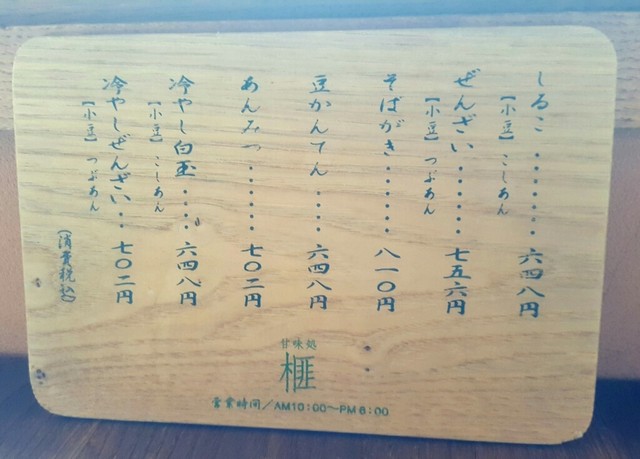 しるこ・・・・・・・六四八円
【小豆】こしあん
ぜんざい・・・・・・七五六円
【小豆】つぶあん
そばがき・・・・・・八一〇円
豆かんてん・・・・六四八円
あんみつ・・・・・・七〇二円
冷やし白玉・・・・六四八円
【小豆】こしあん
冷やしぜんざい・・・七〇二円
【小豆】つぶあん
(消費税込)
甘味処
榧
営業時間／AM10:00〜PM6:00